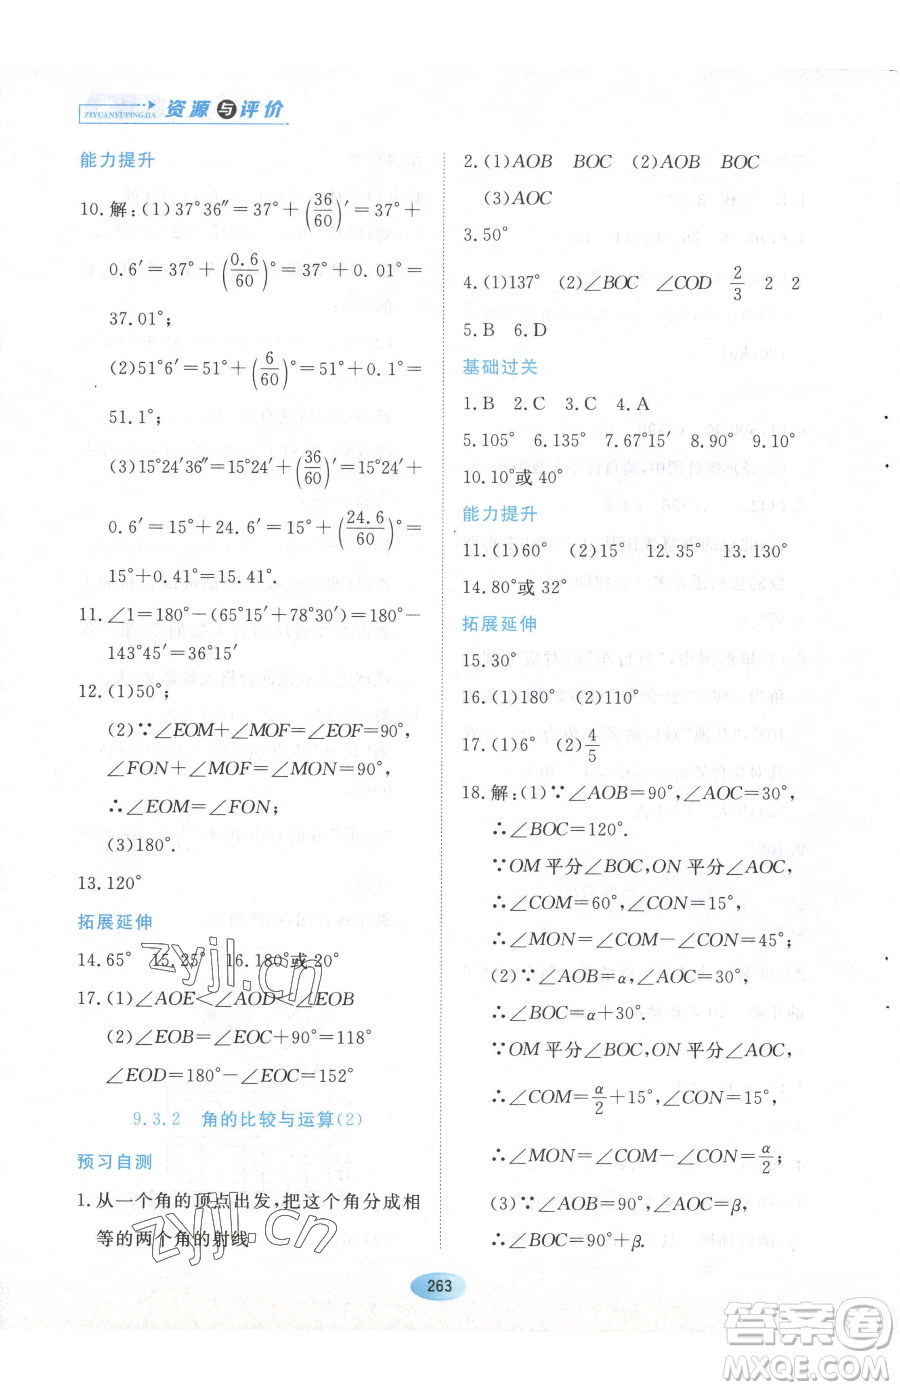 资源与评价
ZIYUANYUPINGJIA
能力提升
10.解:(1)37°36″=37°+(36/60)′=37°+
0.6′=37°+(0.6/60)°=37°+0.01°=
37.01°;
(2)51°6′=51°+(6/60)°=51°+0.1°=
51.1°;
(3)15°24′36″=15°24′+(36/60)′=15°24′+
0.6′=15°+24.6′=15°+(24.6/60)°=
15°+0.41°=15.41°.
11.∠1=180°-(65°15′+78°30′)=180°-
143°45′=36°15′
12.(1)50°;
(2)∵∠EOM+∠MOF=∠EOF=90°,
∠FON+∠MOF=∠MON=90°,
∴∠EOM=∠FON;
(3)180°.
13.120°
拓展延伸
14.65° 15.25° 16.180°或20°
17.(1)∠AOE<∠AOD<∠EOB
(2)∠EOB=∠EOC+90°=118°
∠EOD=180°-∠EOC=152°
9.3.2 角的比较与运算(2)
预习自测
1.从一个角的顶点出发,把这个角分成相
等的两个角的射线
2.(1)AOB BOC (2)AOB BOC
(3)AOC
3.50°
4.(1)137° (2)∠BOC ∠COD 2/3 2 2
5.B 6.D
基础过关
1.B 2.C 3.C 4.A
5.105° 6.135° 7.67°15′ 8.90° 9.10°
10.10°或40°
能力提升
11.(1)60° (2)15° 12.35° 13.130°
14.80°或32°
拓展延伸
15.30°
16.(1)180° (2)110°
17.(1)6° (2)4/5
18.解:(1)∵∠AOB=90°,∠AOC=30°,
∴∠BOC=120°.
∵OM平分∠BOC,ON平分∠AOC,
∴∠COM=60°,∠CON=15°,
∴∠MON=∠COM-∠CON=45°;
(2)∵∠AOB=α,∠AOC=30°,
∴∠BOC=α+30°.
∵OM平分∠BOC,ON平分∠AOC,
∴∠COM=α/2+15°,∠CON=15°,
∴∠MON=∠COM-∠CON=α/2;
(3)∵∠AOB=90°,∠AOC=β,
∴∠BOC=90°+β.
263
zyjl.cn
zyjl.cn
答案圈
MXQE.COM